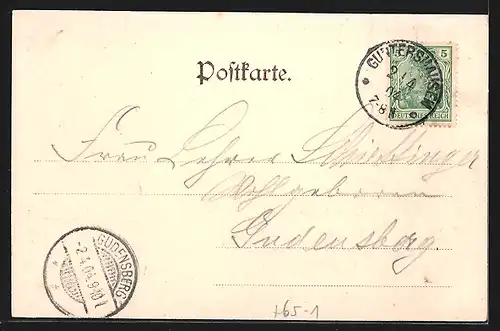 Postkarte.
GUNTERSHAUSEN
2 4
04
7-8 N
5
DEUTSCHES REICH
Frau Lehrer
Wohlgeboren
Gudensberg.
GUDENSBERG
-2.4.04.9-10
+65-1